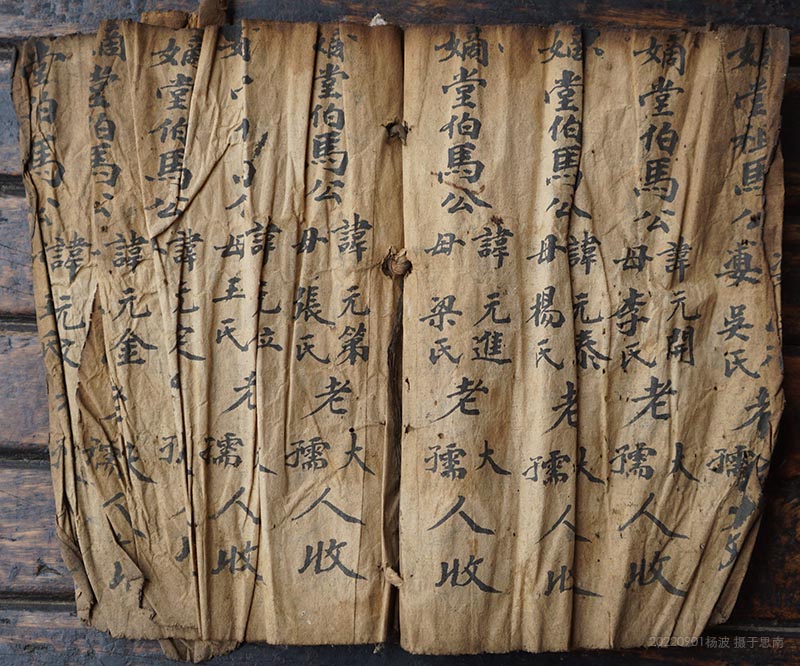 堂祖馬公妻吳氏老孺
嫡堂伯馬公諱元開母李氏老大孺人收
嫡堂伯馬公諱元泰母楊氏老大孺人收
嫡堂伯馬公諱元進母梁氏老大孺人收
嫡堂伯馬公諱元第母張氏老大孺人收
諱元母王氏老孺人收
嫡堂伯馬公諱元
堂伯馬公諱元金孺人
堂伯馬公諱元
20220901杨波 摄于思南